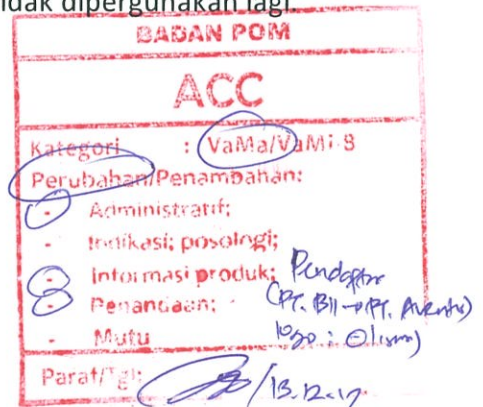 dak dipergunakan lagi.
BADAN POM
ACC
Kategori : VaMa/VaMi-B
Perubahan/Penambahan:
- Administratif;
- Indikasi; posologi;
- Informasi produk; Pendaftar
- Penandaan; (PT. BII → PT. Aventis)
- Mutu logo :
Paraf/Tgl: /13.12.17